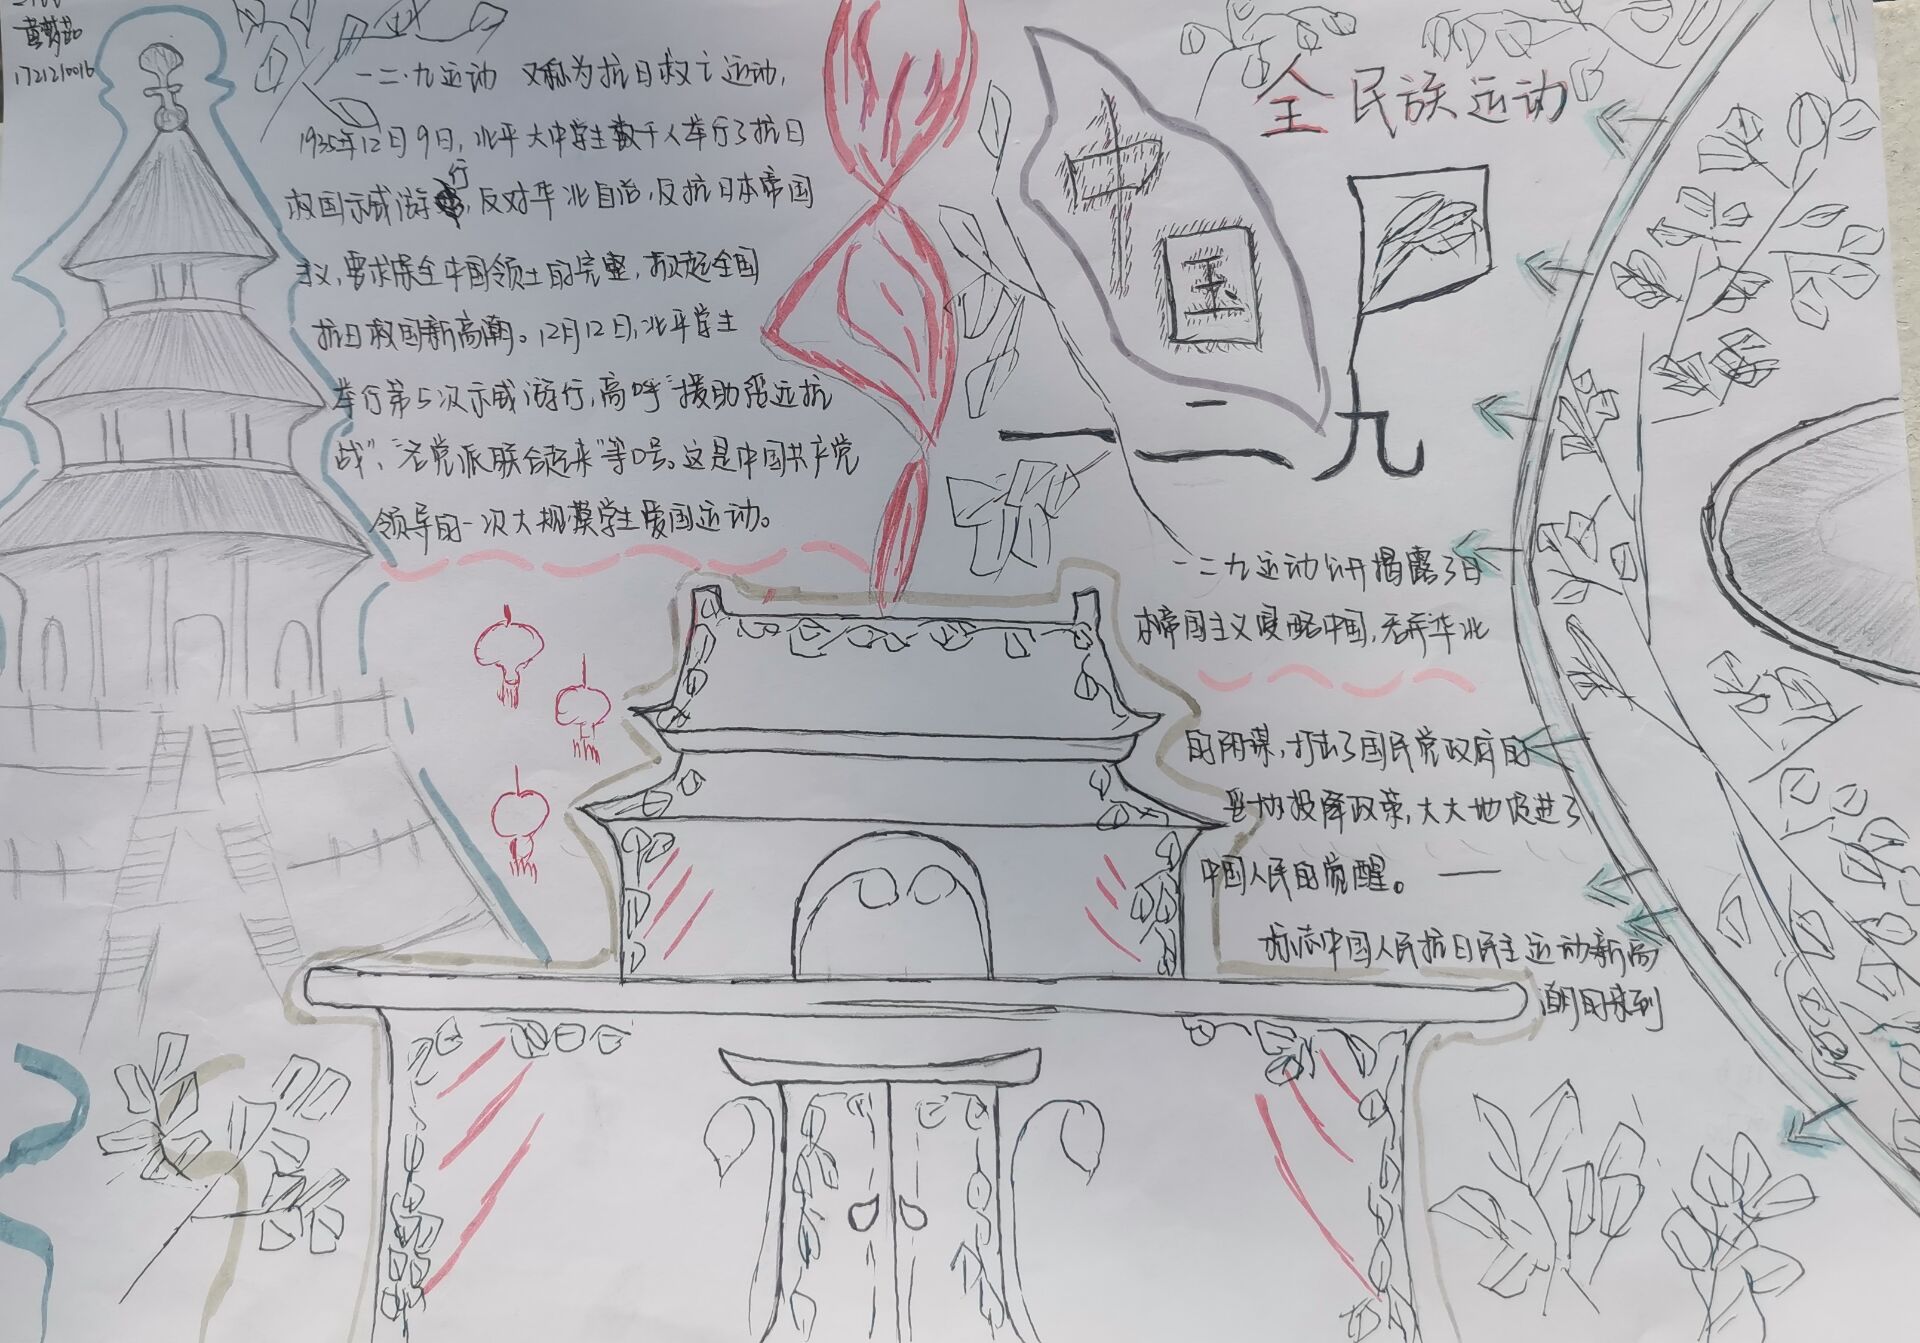 1721210016
一二·九运动 又称为抗日救亡运动,
1935年12月9日,北平大中学生数千人举行了抗日
救国示威游行,反对华北自治,反抗日本帝国
主义,要求保全中国领土的完整,掀起全国
抗日救国新高潮。12月12日,北平学生
举行第5次示威游行,高呼“援助绥远抗
战”,“各党派联合起来”等口号。这是中国共产党
领导的一次大规模学生爱国运动。
中
国
全民族运动
一二九
一二九运动公开揭露了日
本帝国主义侵略中国,吞并华北
的阴谋,打击了国民党政府的
妥协投降政策,大大地促进了
中国人民的觉醒。——
标志中国人民抗日民主运动新高
潮的来到